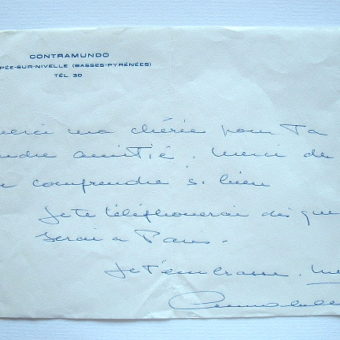 CONTRAMUNDO
PÉE-SUR-NIVELLE (BASSES-PYRÉNÉES)
TÉL 30
merci ma chérie pour Ta
endre amitié. Merci de
comprendre si bien
Je te téléphonerai dès que
serai à Paris.
Je t'embrasse.